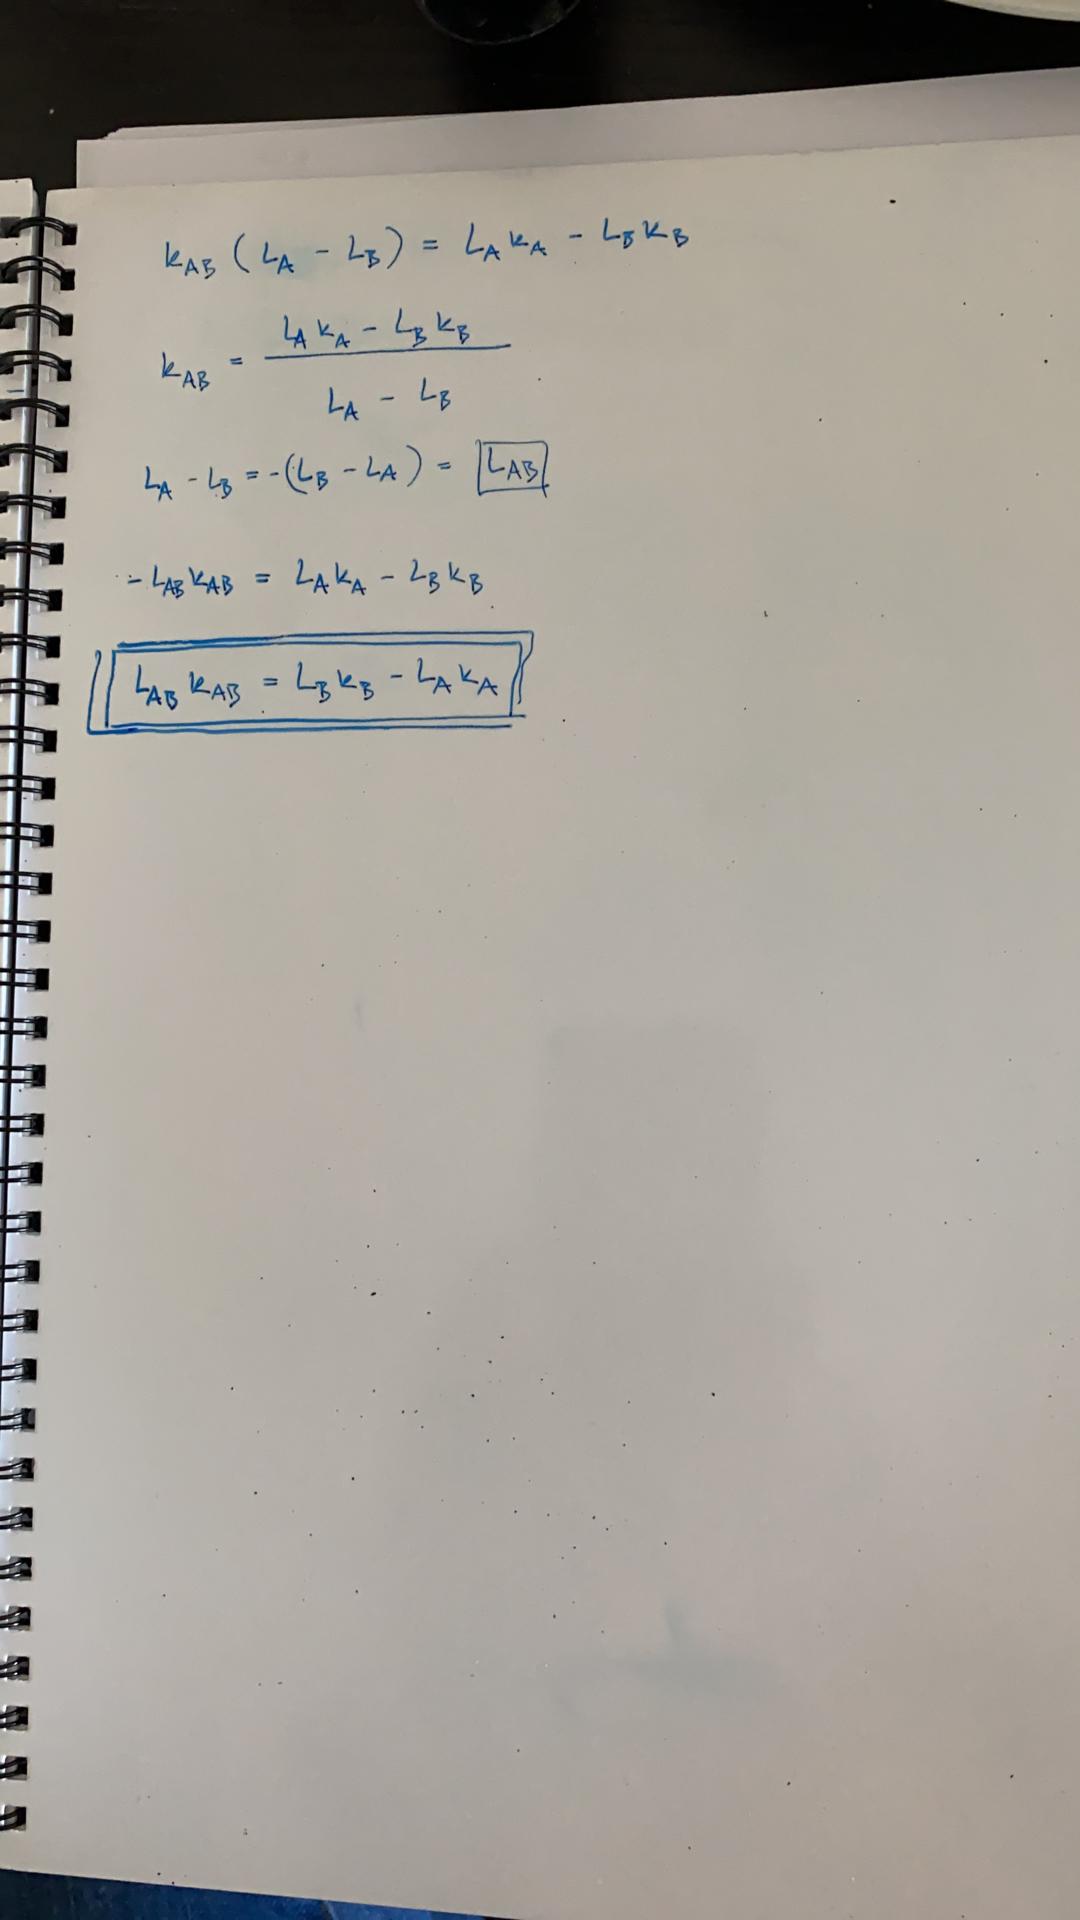 k_AB (L_A - L_B) = L_A k_A - L_B k_B
k_AB = (L_A k_A - L_B k_B) / (L_A - L_B)
L_A - L_B = -(L_B - L_A) = L_AB
- L_AB k_AB = L_A k_A - L_B k_B
L_AB k_AB = L_B k_B - L_A k_A